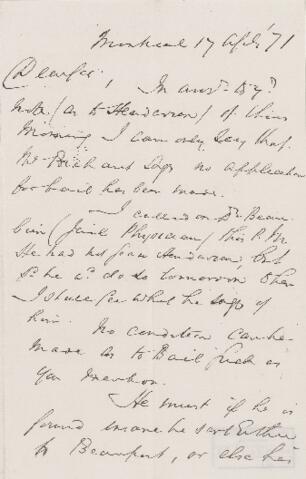 Montreal 17 Apl '71
Dear Sir,
In ansr. to yr.
note (as to Henderson) of this
morning I can only say that
Mr says no application
for bail has been made.
I called on Dr Beau
bien (Jail Physician) this P.M.
He had not seen Henderson, but
sd. he wd. do so tomorrow & then
I shall see what he says of
him. No condition can be
made as to Bail such as
you mention.
He must if he is
found insane be sent either
to Beauport, or else his